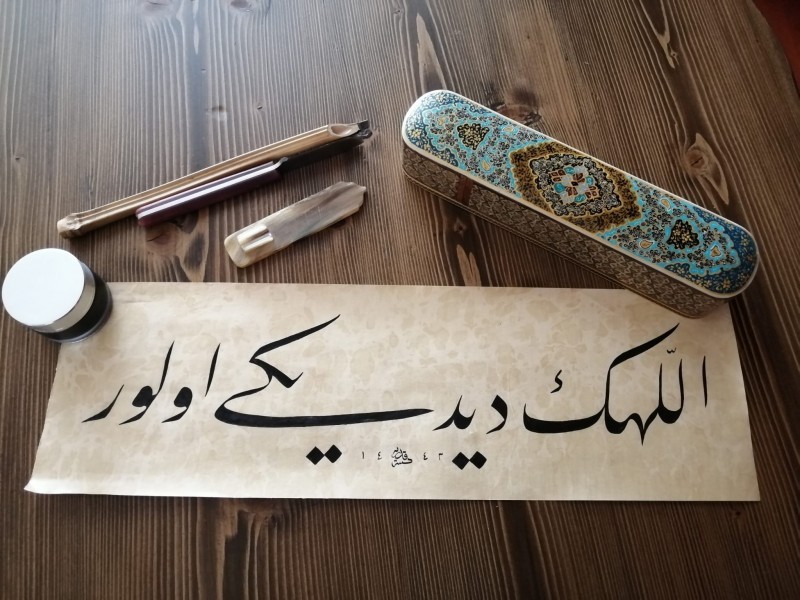 اللّهك ديديكے اولور
١٤٤٣